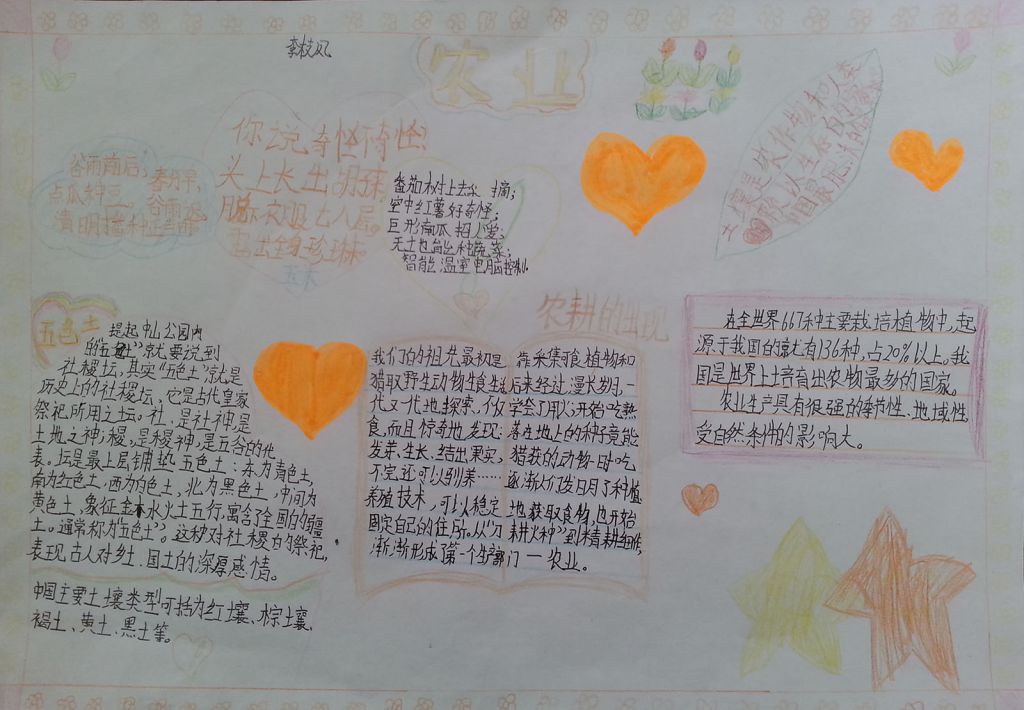 李枝凤
农业
谷雨前后，
点瓜种豆。
春分早，
谷雨迟，
清明播种正当时
你说奇怪不奇怪？
头上长出胡珠
脱去衣服古人居。
露出全身珍珠
玉米
番茄树上去采摘；
空中红薯好奇怪；
巨形南瓜招人爱；
无土也能种蔬菜；
智能温室电脑控制。
土壤是农作物和人
类赖以生存的
五色土
提起中山公园内
的“五色土”就要说到
社稷坛，其实“五色土”就是
历史上的社稷坛，它是古代皇家
祭祀所用之坛。社，是社神，是
土地之神；稷，是稷神，是五谷的代
表。坛是最上层铺垫五色土：东为青色土，
南为红色土，西为白色土，北为黑色土，中间为
黄色土，象征金木水火土五行，寓含了全国的疆
土。通常称为“五色土”。这种对社稷的祭祀，
表现古人对乡土、国土的深厚感情。
中国主要土壤类型可括为红壤、棕壤、
褐土、黄土、黑土等。
农耕的出现
我们的祖先最初是靠采集可食植物和
猎取野生动物生食生活后来经过漫长岁月，一
代又一代地探索，不仅学会了用火，开始吃熟
食，而且惊奇地发现：落在地上的种子竟能
发芽、生长、结出果实，猎获的动物一时吃
不完还可以驯养……逐渐人们发明了种植
养殖技术，可以稳定地获取食物，也开始
固定自己的住所。从“刀耕火种”到精耕细作，
渐渐形成了第一个生产部门—农业。
在全世界667种主要栽培植物中，起
源于我国的就有136种，占20%以上。我
国是世界上培育出农物最多的国家。
农业生产具有很强的季节性、地域性，
受自然条件的影响大。